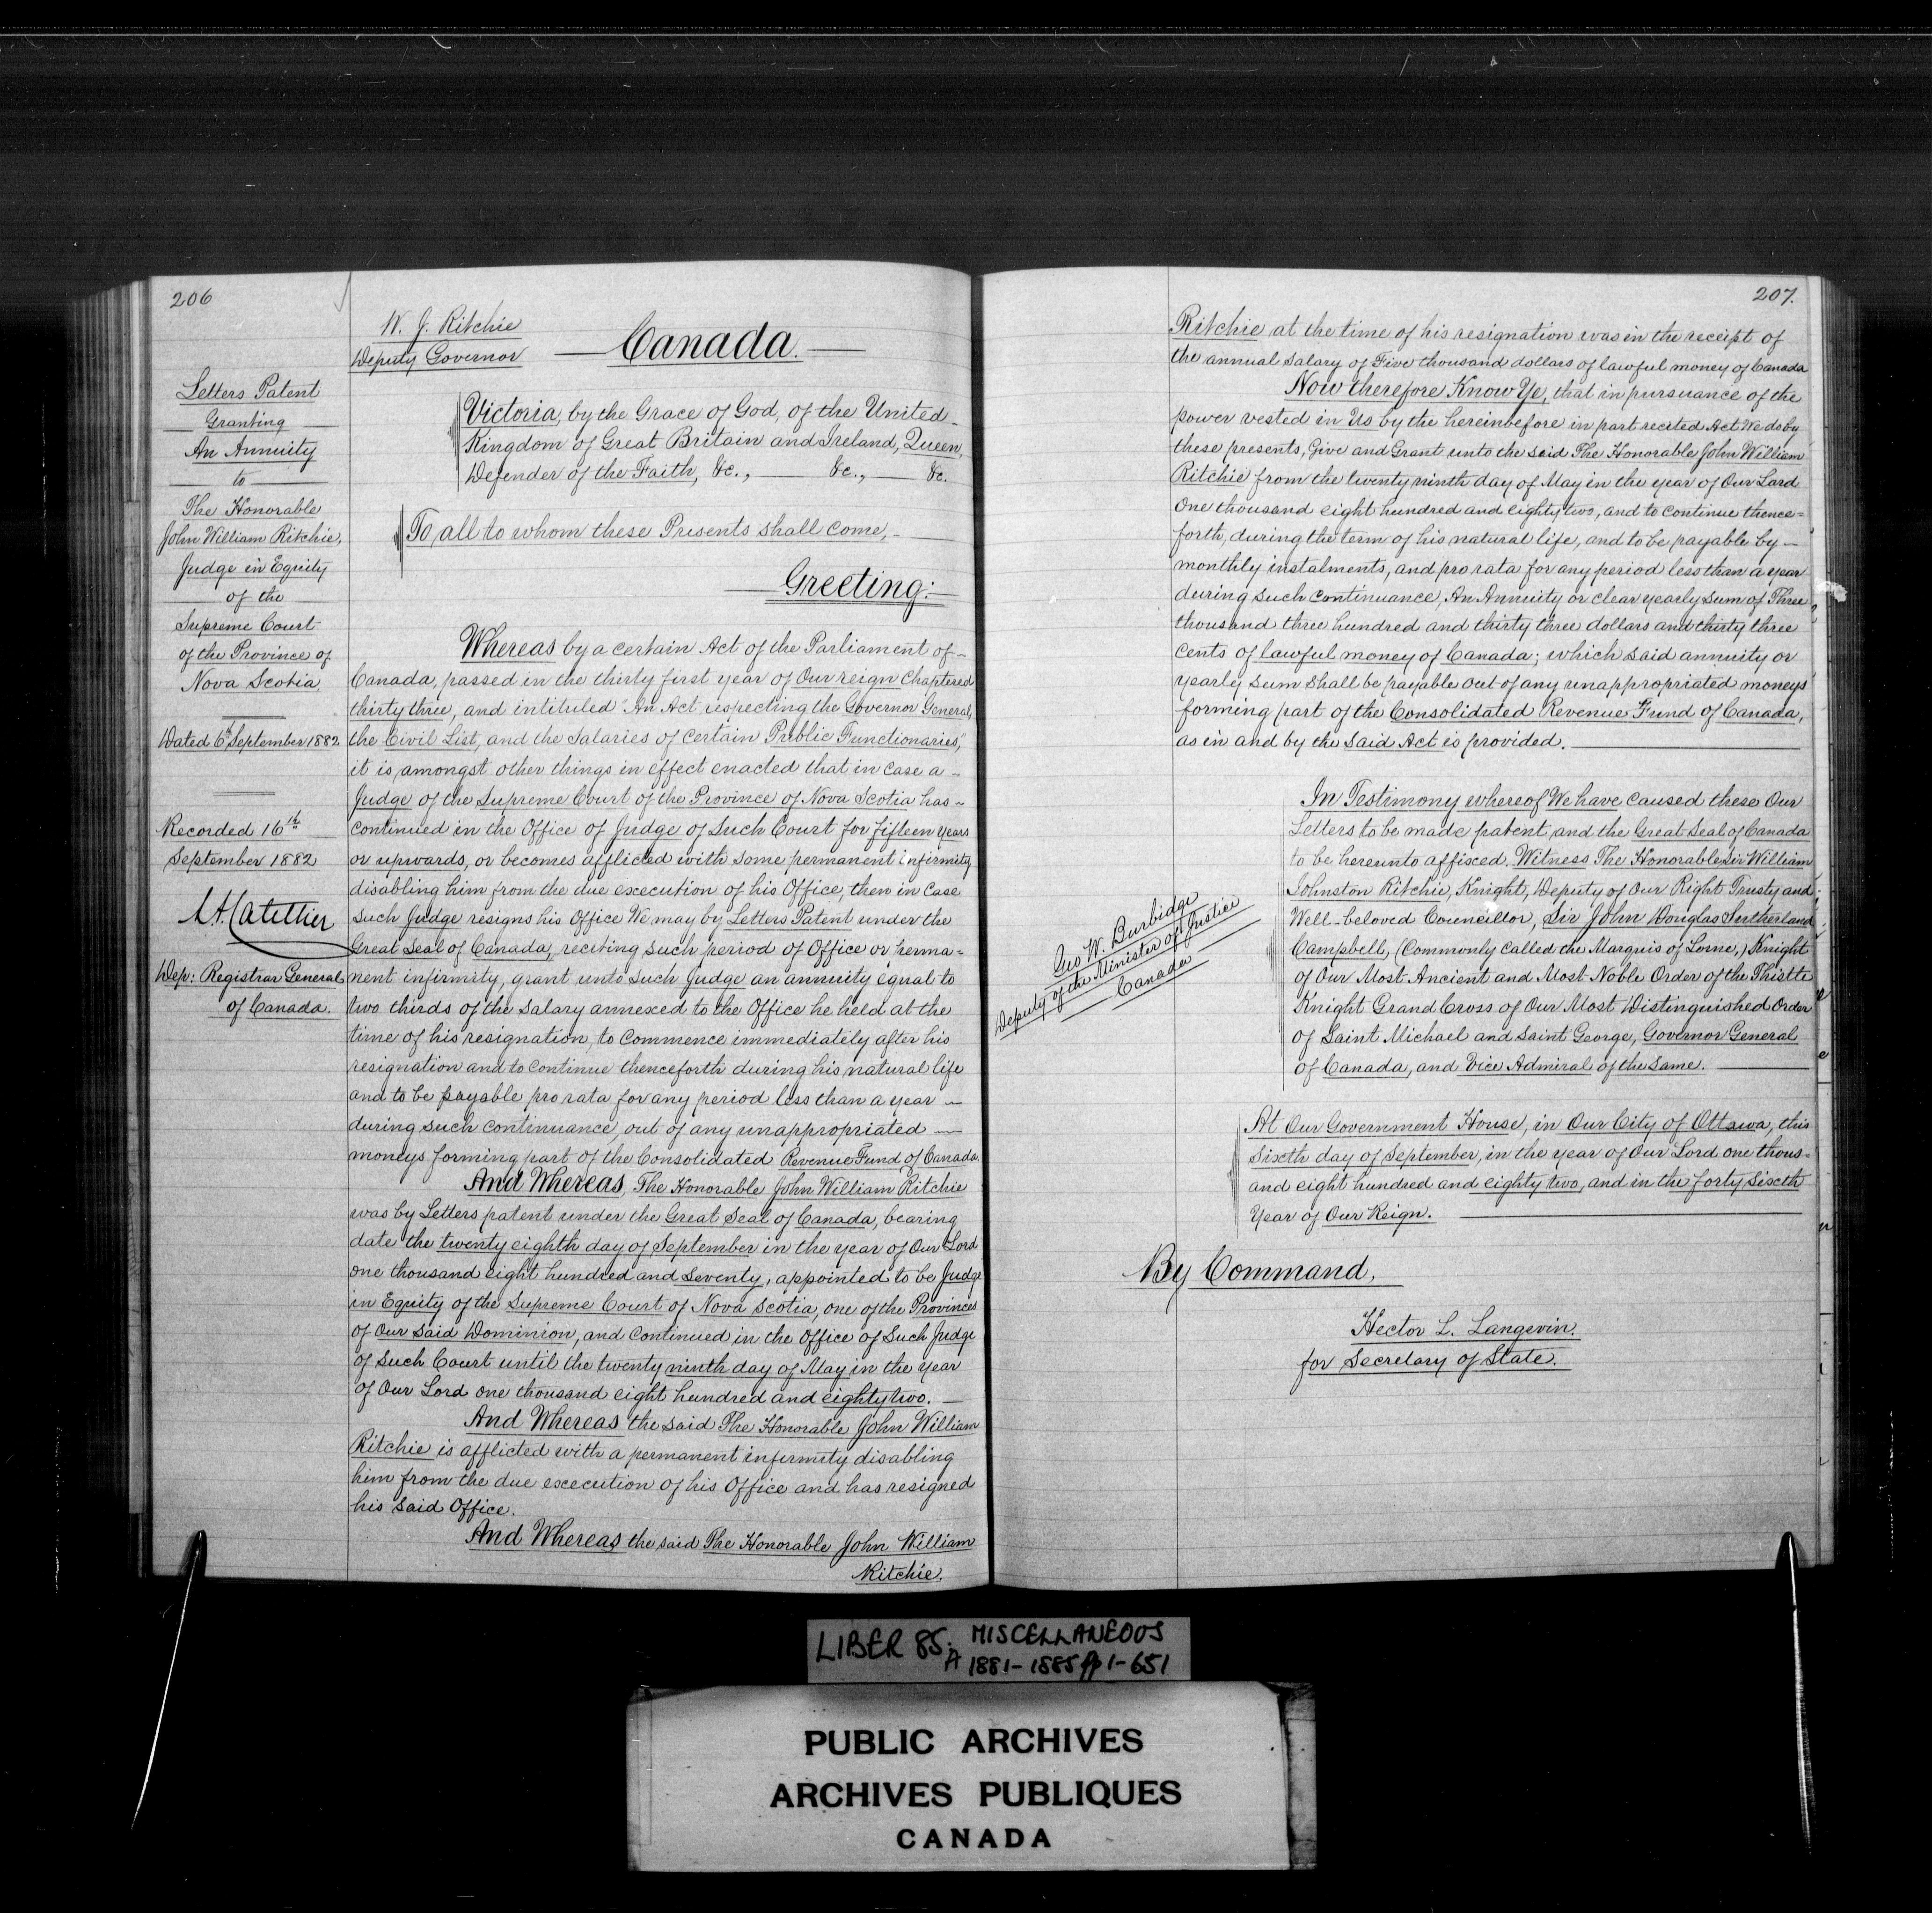 206
W. J. Ritchie
Deputy Governor
Canada.
Letters Patent
Granting
An Annuity
to
The Honorable
John William Ritchie,
Judge in Equity
of the
Supreme Court
of the Province of
Nova Scotia
Dated 6th September 1882
Recorded 16th
September 1882
Dep: Registrar General
of Canada.
Victoria, by the Grace of God, of the United
Kingdom of Great Britain and Ireland, Queen,
Defender of the Faith, &c., &c., &c.
To all to whom these Presents shall come,
Greeting:
Whereas by a certain Act of the Parliament of
Canada, passed in the thirty first year of Our reign Chaptered
thirty three, and intituled "An Act respecting the Governor General,
the Civil List, and the Salaries of certain Public Functionaries,"
it is amongst other things in effect enacted that in case a
Judge of the Supreme Court of the Province of Nova Scotia has
continued in the Office of Judge of Such Court for fifteen years
or upwards, or becomes afflicted with some permanent infirmity
disabling him from the due execution of his Office, then in case
such Judge resigns his Office We may by Letters Patent under the
Great Seal of Canada, reciting such period of Office or perma=
nent infirmity, grant unto such Judge an annuity equal to
two thirds of the Salary annexed to the Office he held at the
time of his resignation, to commence immediately after his
resignation and to continue thenceforth during his natural life
and to be payable pro rata for any period less than a year
during such continuance, out of any unappropriated
moneys forming part of the Consolidated Revenue Fund of Canada
And Whereas, The Honorable John William Ritchie
was by Letters patent under the Great Seal of Canada, bearing
date the twenty eighth day of September in the year of Our Lord
one thousand eight hundred and Seventy, appointed to be Judge
in Equity of the Supreme Court of Nova Scotia, one of the Provinces
of Our said Dominion, and continued in the Office of Such Judge
of Such Court until the twenty ninth day of May in the year
of Our Lord one thousand eight hundred and eighty two.
And Whereas the said The Honorable John William
Ritchie is afflicted with a permanent infirmity disabling
him from the due execution of his Office and has resigned
his said Office.
And Whereas the said The Honorable John William
Ritchie,
207.
Ritchie at the time of his resignation was in the receipt of
the annual Salary of Five thousand dollars of lawful money of Canada
Now therefore Know Ye, that in pursuance of the
power vested in Us by the hereinbefore in part recited Act We do by
these presents, Give and Grant unto the said The Honorable John William
Ritchie from the twenty ninth day of May in the year of Our Lord
One thousand eight hundred and eighty two, and to continue thence=
forth, during the term of his natural life, and to be payable by
monthly instalments, and pro rata for any period less than a year
during such continuance, An Annuity or clear yearly sum of Three
thousand three hundred and thirty three dollars and thirty three
cents of lawful money of Canada; which said annuity or
yearly sum shall be payable out of any unappropriated moneys
forming part of the Consolidated Revenue Fund of Canada,
as in and by the said Act is provided.
In Testimony whereof We have caused these Our
Letters to be made patent and the Great Seal of Canada
to be hereunto affixed. Witness The Honorable Sir William
Johnston Ritchie, Knight, Deputy of Our Right Trusty and
Well-beloved Councillor, Sir John Douglas Sutherland
Campbell, (Commonly called the Marquis of Lorne,) Knight
of Our Most Ancient and Most Noble Order of the Thistle
Knight Grand Cross of Our Most Distinguished Order
of Saint Michael and Saint George, Governor General
of Canada, and Vice Admiral of the Same.
Geo W. Burbidge
Deputy of the Minister of Justice
Canada
At Our Government House, in Our City of Ottawa, this
Sixth day of September, in the year of Our Lord one thous=
and eight hundred and eighty two, and in the forty Sixth
Year of Our Reign.
By Command,
Hector L. Langevin.
for Secretary of State.
LIBER 85. MISCELLANEOUS
A 1881-1885 pp 1-651
PUBLIC ARCHIVES
ARCHIVES PUBLIQUES
CANADA